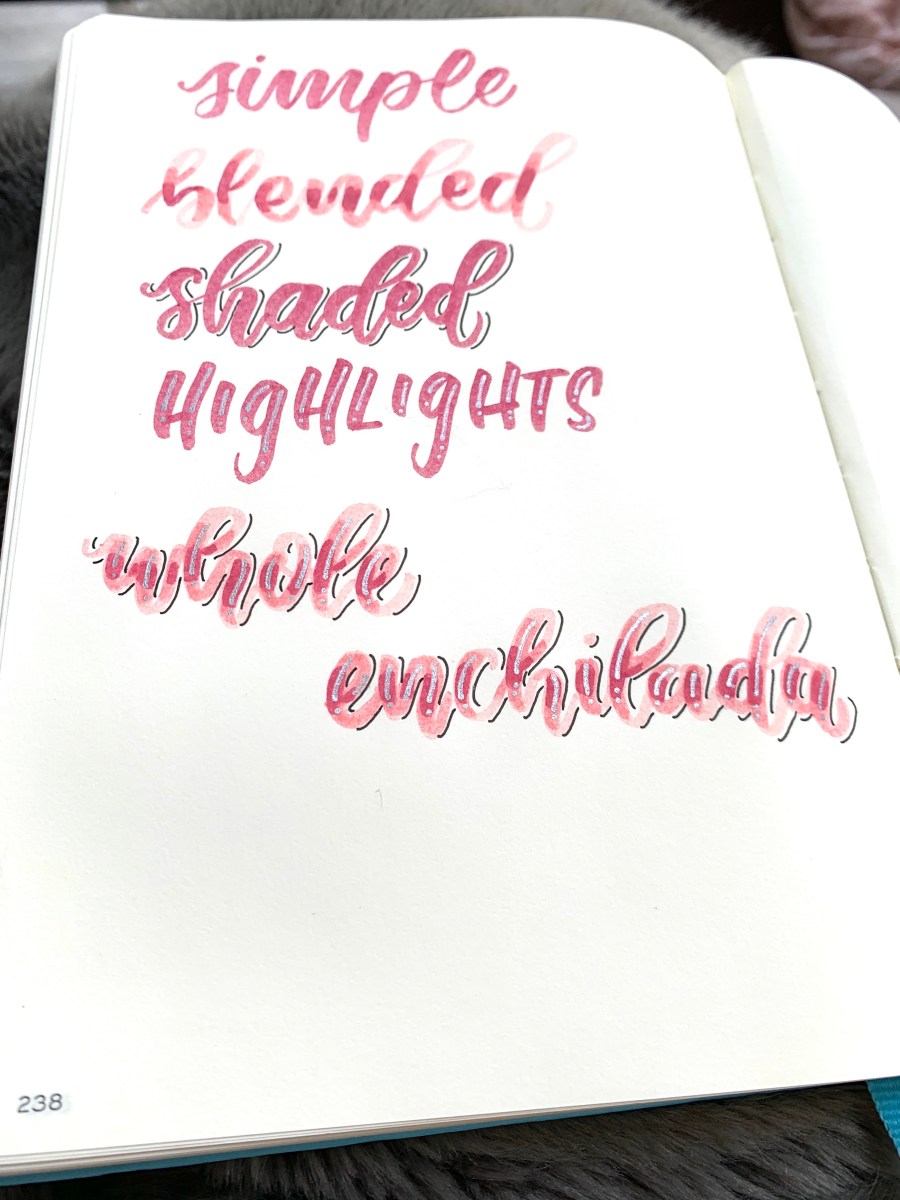 simple
blended
shaded
HIgHLIgHTS
whole
enchilada
238